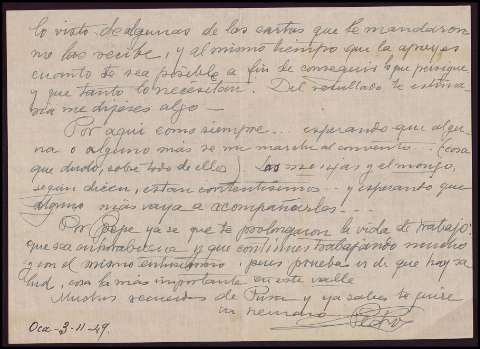 lo visto de algunas de las cartas que te mandaron
no las recibe, y al mismo tiempo que la apoyes
cuanto te sea posible a fin de conseguir lo que persigue
y que tanto lo necesitan. Del resultado te estima
ría me dijeses algo -
Por aquí como siempre... esperando que algu-
na o alguno más se me marche al convento... (cosa
que dudo, sobre todo de ellos) las monjas y el monje,
según dicen, están contentísimos... y esperando que
alguno más vaya a acompañarles...
Por Pepe ya se que te prolongaron la vida de trabajo:
que sea enhorabuena y que continues trabajando mucho
y con el mismo entusiasmo, pues prueba es de que hay sa
lud, cosa la más importante en este valle
Muchos recuerdos de Pura y ya sabes te quiere
tu hermano Pedro
Oca - 3-11-49.